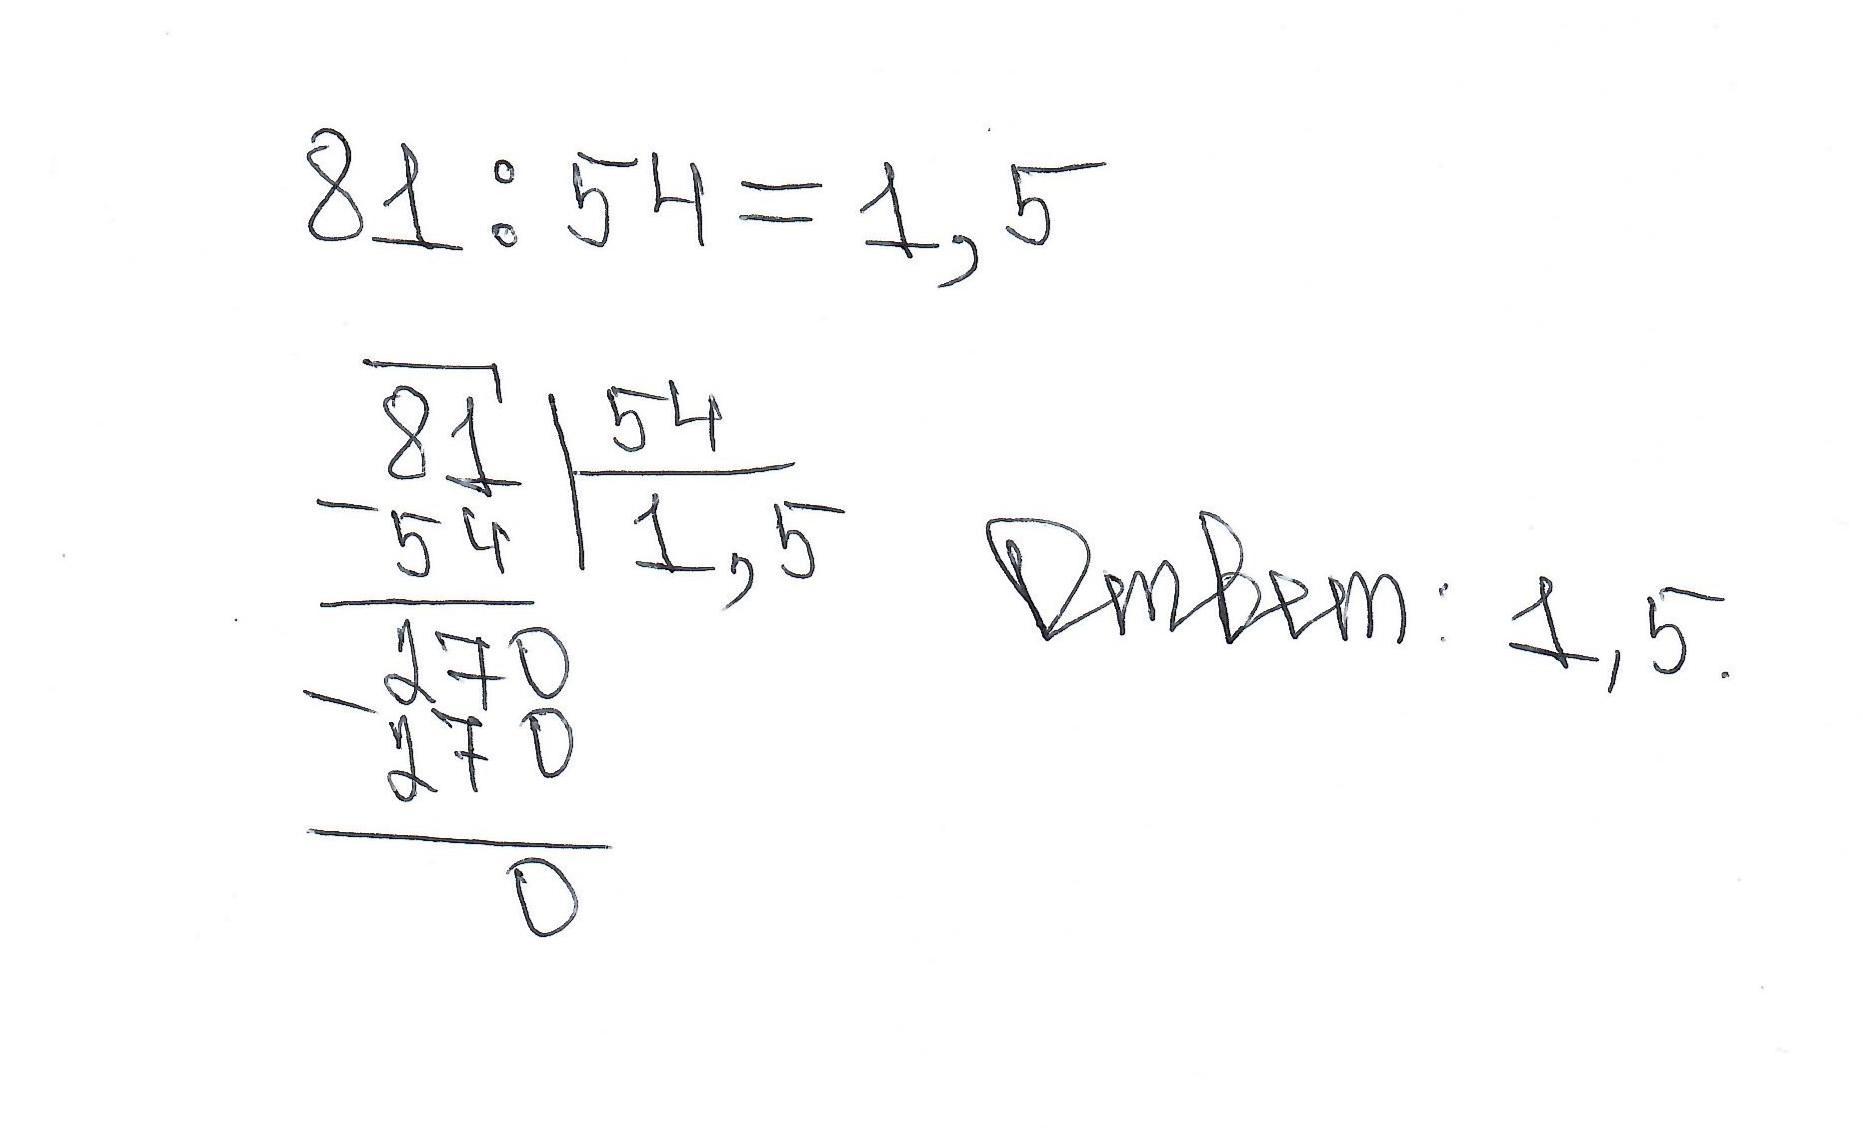 81:54=1,5
81 54
-54 1,5
270
-270
0
Ответ: 1,5.